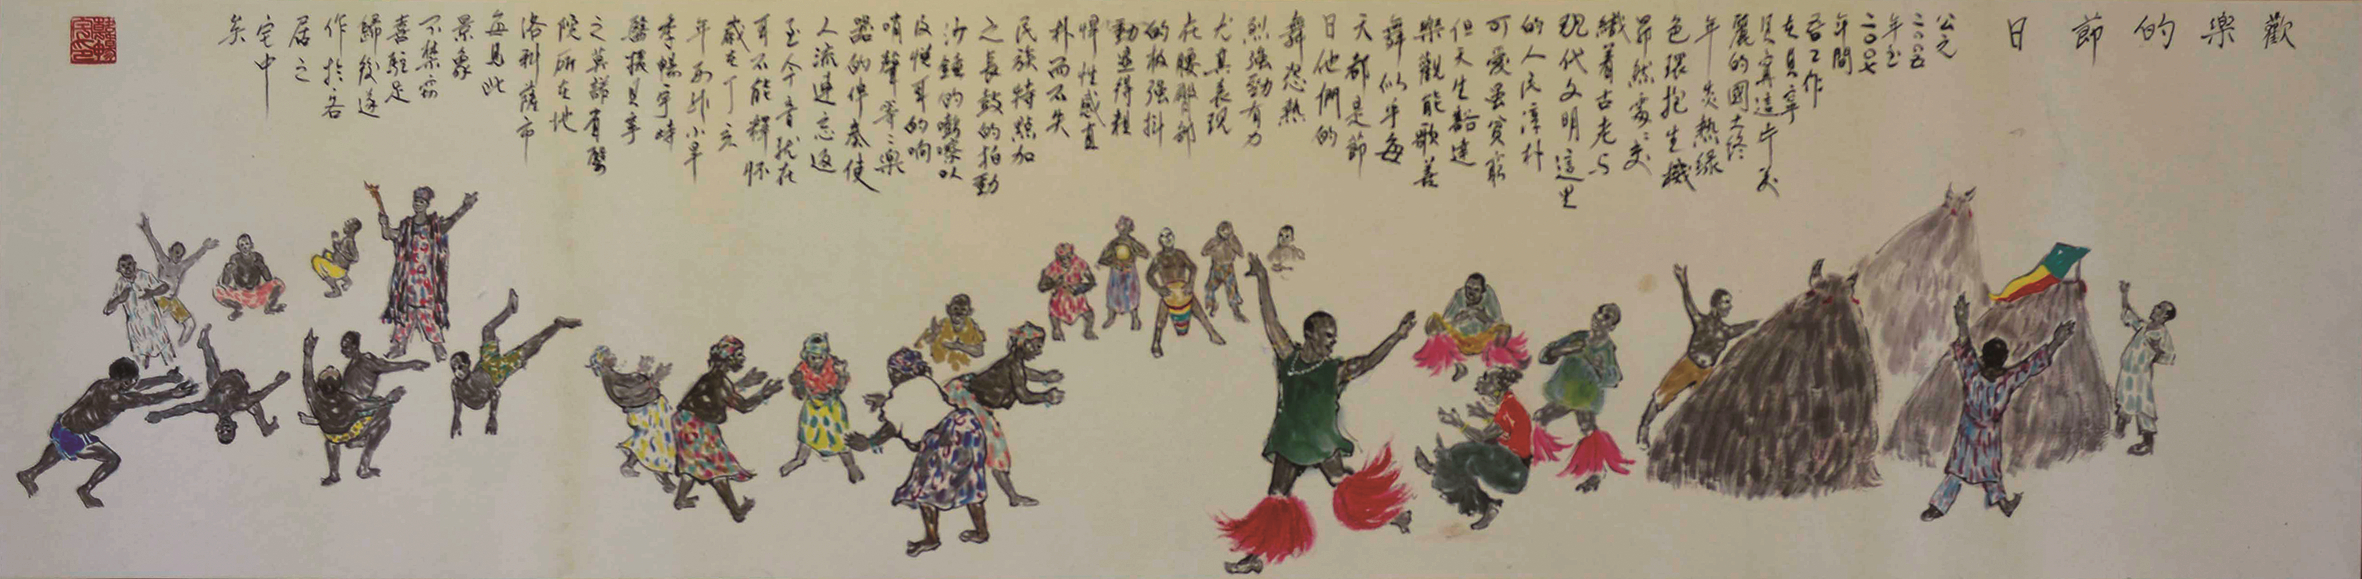 歡樂的節日
公元
二〇〇五
年至
二〇〇七
年間
吾工作
在貝寧
貝寧這片美
麗的國土終
年炎熱綠
色環抱生機
昂然處處交
織著古老与
現代文明這里
的人民淳朴
可愛虽貧窮
但天生豁達
樂觀能歌善
舞似乎每
天都是節
日他們的
舞姿熱
烈強勁有力
尤其表現
在腰臀部
的极強抖
動显得粗
悍性感直
朴而不失
民族特點加
之長鼓的拍動
沙錘的嘶嚓以
及悅耳的响
哨聲等等樂
器的伴奏使
人流連忘返
至今音犹在
耳不能釋怀
歲在丁亥
年
季暢宇時
醫援貝寧
之莫諾省醫
院所在地
洛科薩市
每見此
景象
不禁窃
喜駐足
歸後遂
作於吾
居之
宅中
矣